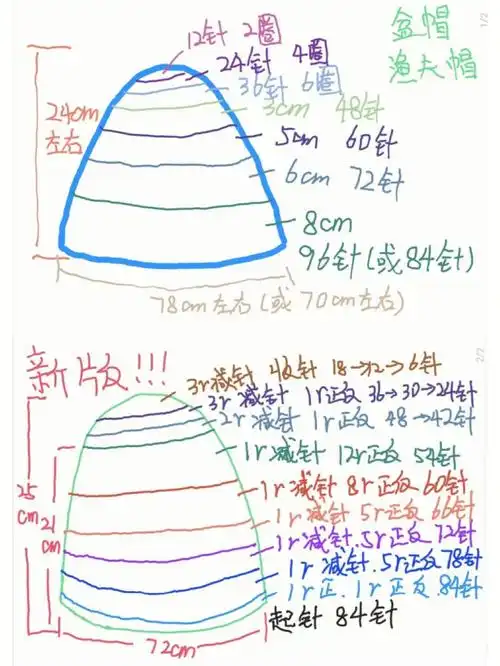 1/2
盆帽
渔夫帽
12针 2圈
24针 4圈
36针 6圈
3cm 48针
5cm 60针
6cm 72针
8cm
96针(或84针)
24cm
左右
78cm左右(或70cm左右)
2/2
新版!!!
3r减针 收针 18→12→6针
3r减针 1r正反 36→30→24针
2r减针 1r正反 48→42针
1r减针 12r正反 54针
1r减针 8r正反 60针
1r减针 5r正反 66针
1r减针.5r正反72针
1r减针.5r正反78针
1r正.1r正反.84针
起针 84针
25
cm
21
cm
72cm